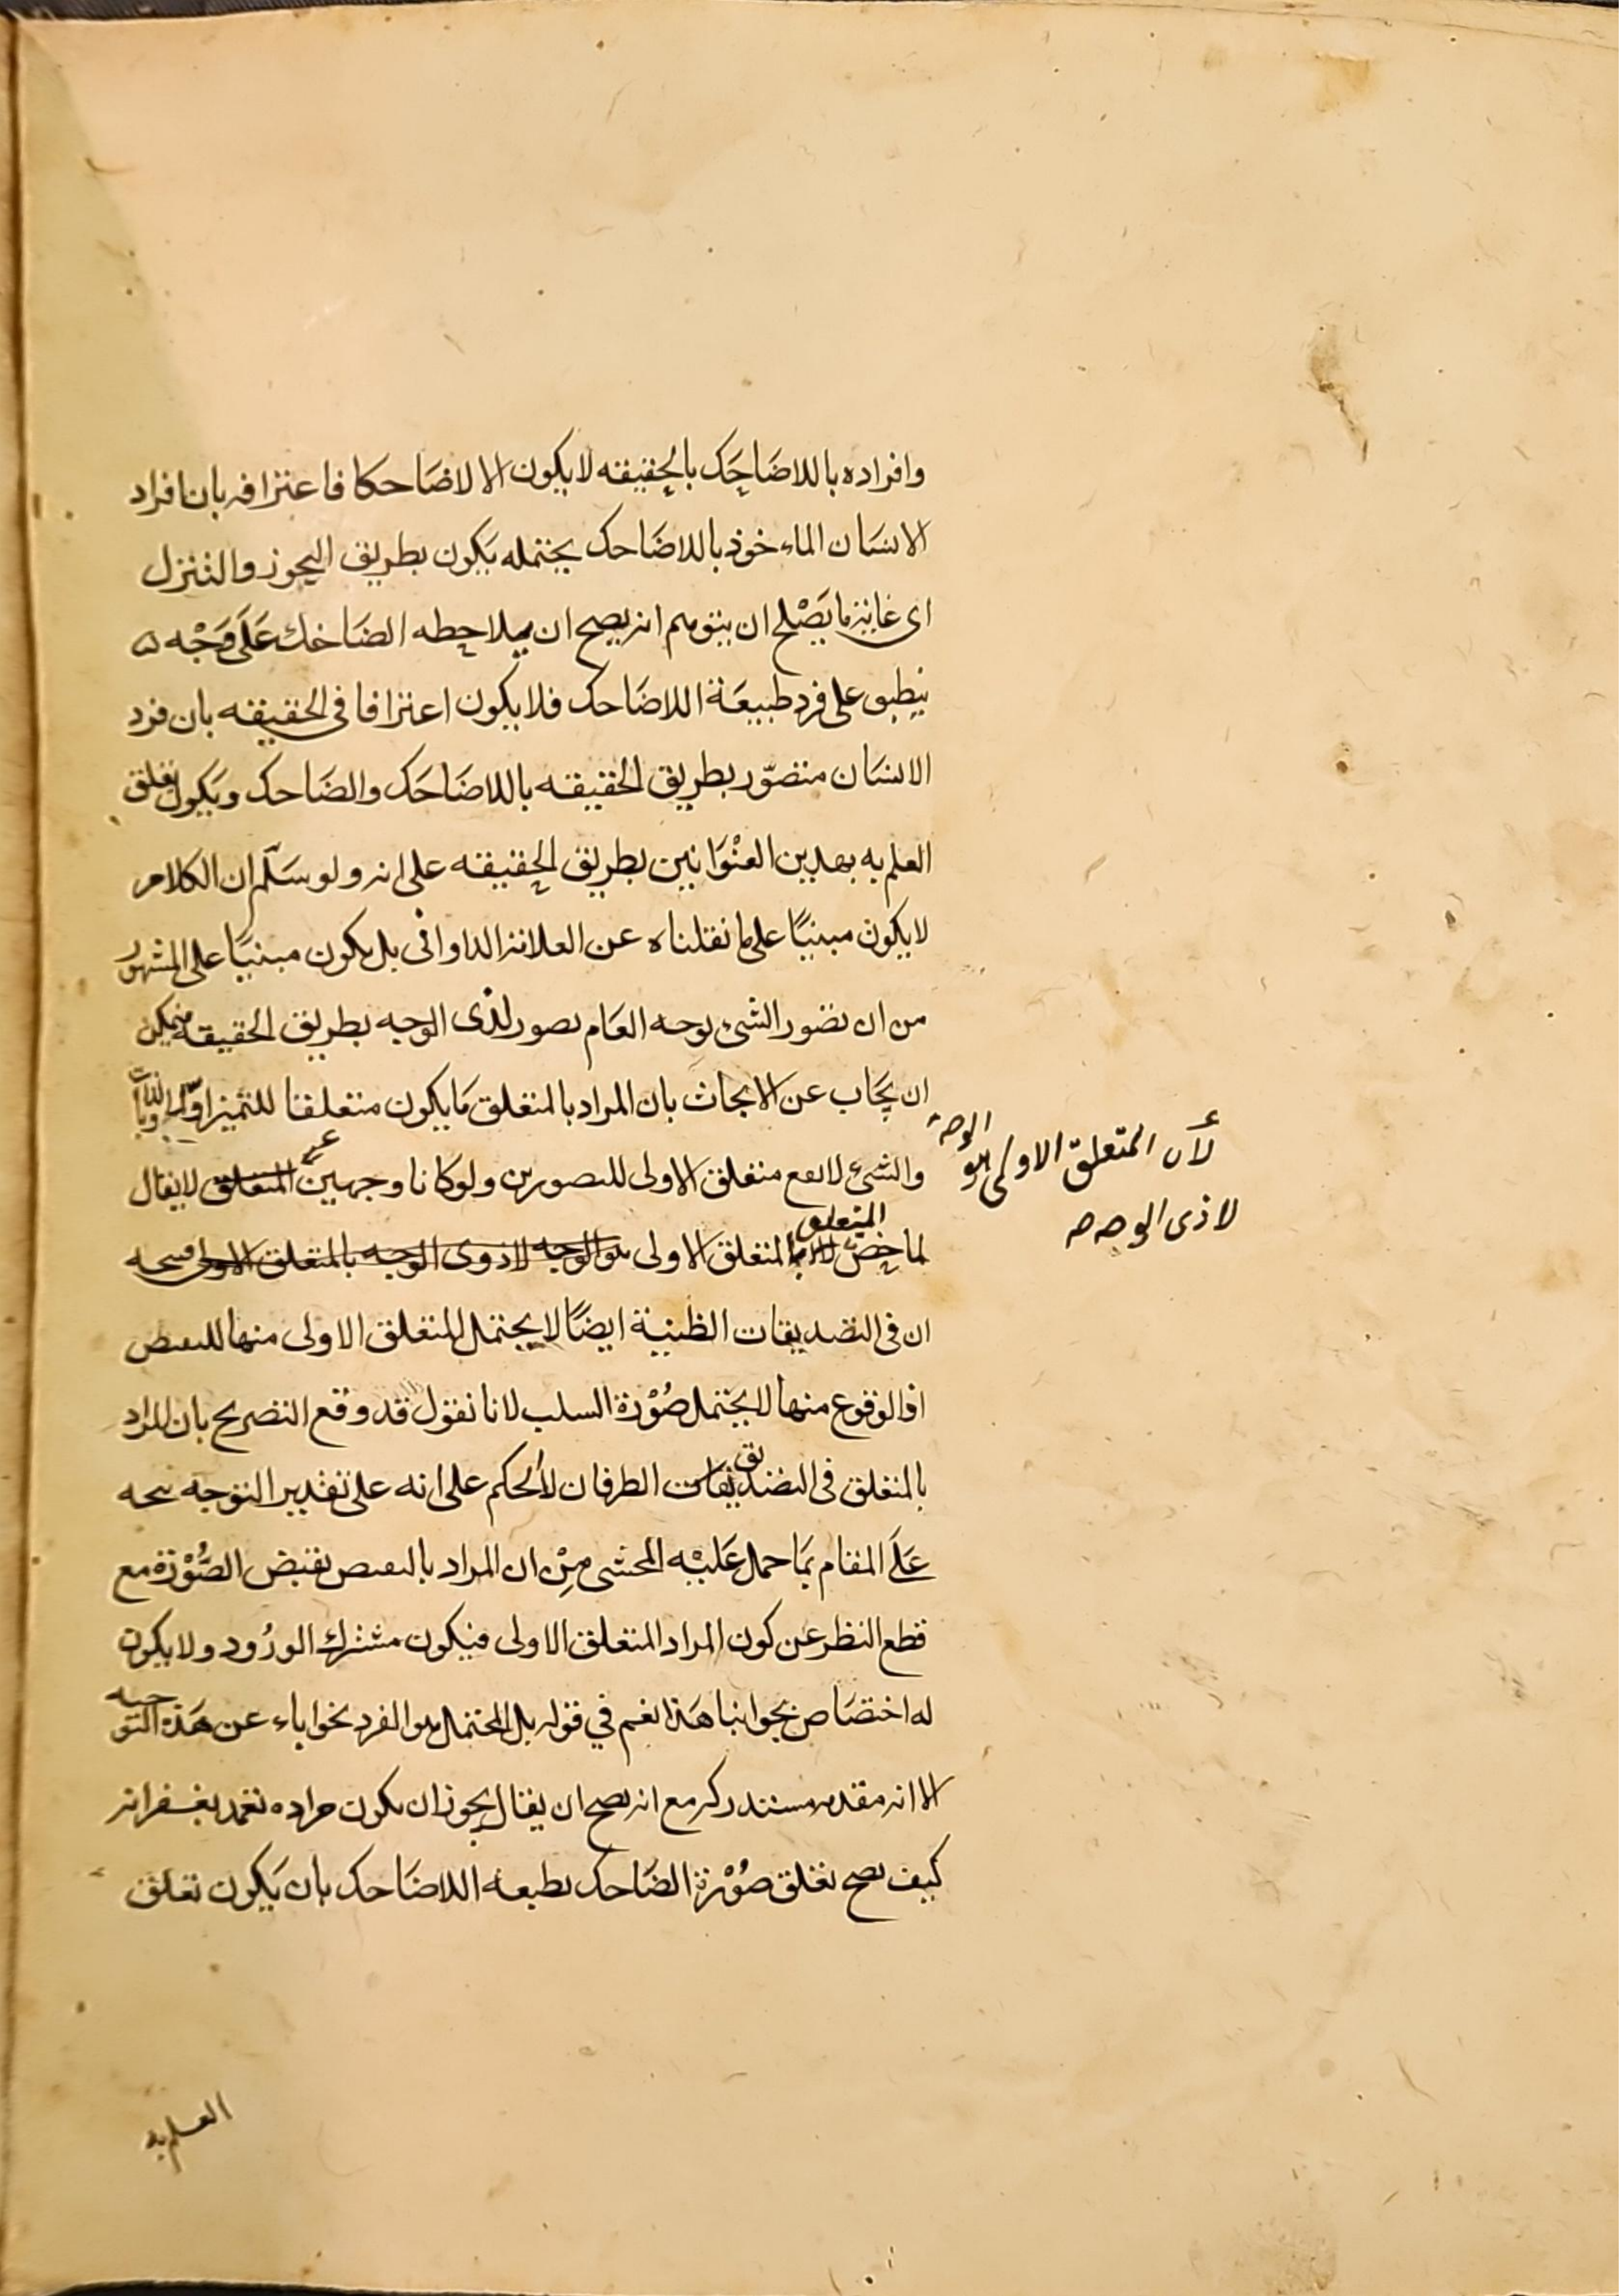 وافراده باللاضاحك بالحقيقه لا يكون الا لاضاحكا فاعترافه بان افراد
الانسان الماءخوذ باللاضاحك يحتمله يكون بطريق التجوز والتنزل
اى غايته ما يصلح ان يتوهم انه يصح ان يلاحظه الضاحك على وجه
ينطبق على فرد طبيعة اللاضاحك فلا يكون اعترافا فى الحقيقه بان فرد
الانسان متصوّر بطريق الحقيقه باللاضاحك والضاحك ويكون تعلق
العلم به بهدين العنوانين بطريق الحقيقه على انه ولو سلّم ان الكلام
لا يكون مبنيًا على ما نقلناه عن العلامة الداوانى بل يكون مبنيًا على المشهور
من ان تصور الشىء بوجه العام تصور لذى الوجه بطريق الحقيقه فيمكن
ان يجاب عن الابحاث بان المراد بالمتعلق ما يكون متعلقا للتميز اوّلا وبالذات
والشىء لا يقع متعلق الاولى للتصورين ولو كانا وجهين عن المتعلق لا يقال
لما خص المتعلق بالمتعلق الاولى هو الوجه لا ذوى الوجه بالمتعلق الاولى فيتجه
ان فى التصديقات الظنية ايضًا لا يحتمل المتعلق الاولى منها للنقيض
اذ الوقوع منها لا يحتمل صورة السلب لانا نقول قد وقع التصريح بان المراد
بالمتعلق فى التصديقات الطرفان لا الحكم على انه على تقدير التوجه يتجه
على المقام بما حمل عليه المحشى من ان المراد بالنقيض نقيض الصورة مع
قطع النظر عن كون المراد المتعلق الاولى فيكون مشترك الورود ولا يكون
له اختصاص بجوابنا هذا نعم في قوله بل المحتمل هو الفرد نحو اباء عن هذه التوجيه
الا انه مقدمه مستدركه مع انه يصح ان يقال يجوز ان يكون مراده تغمد بغفرانه
كيف يصح تعلق صورة الضاحك بطبيعة اللاضاحك بان يكون تعلق
لأن المتعلق الاولى هو الوجه
لا ذى الوجه صح
العلم به